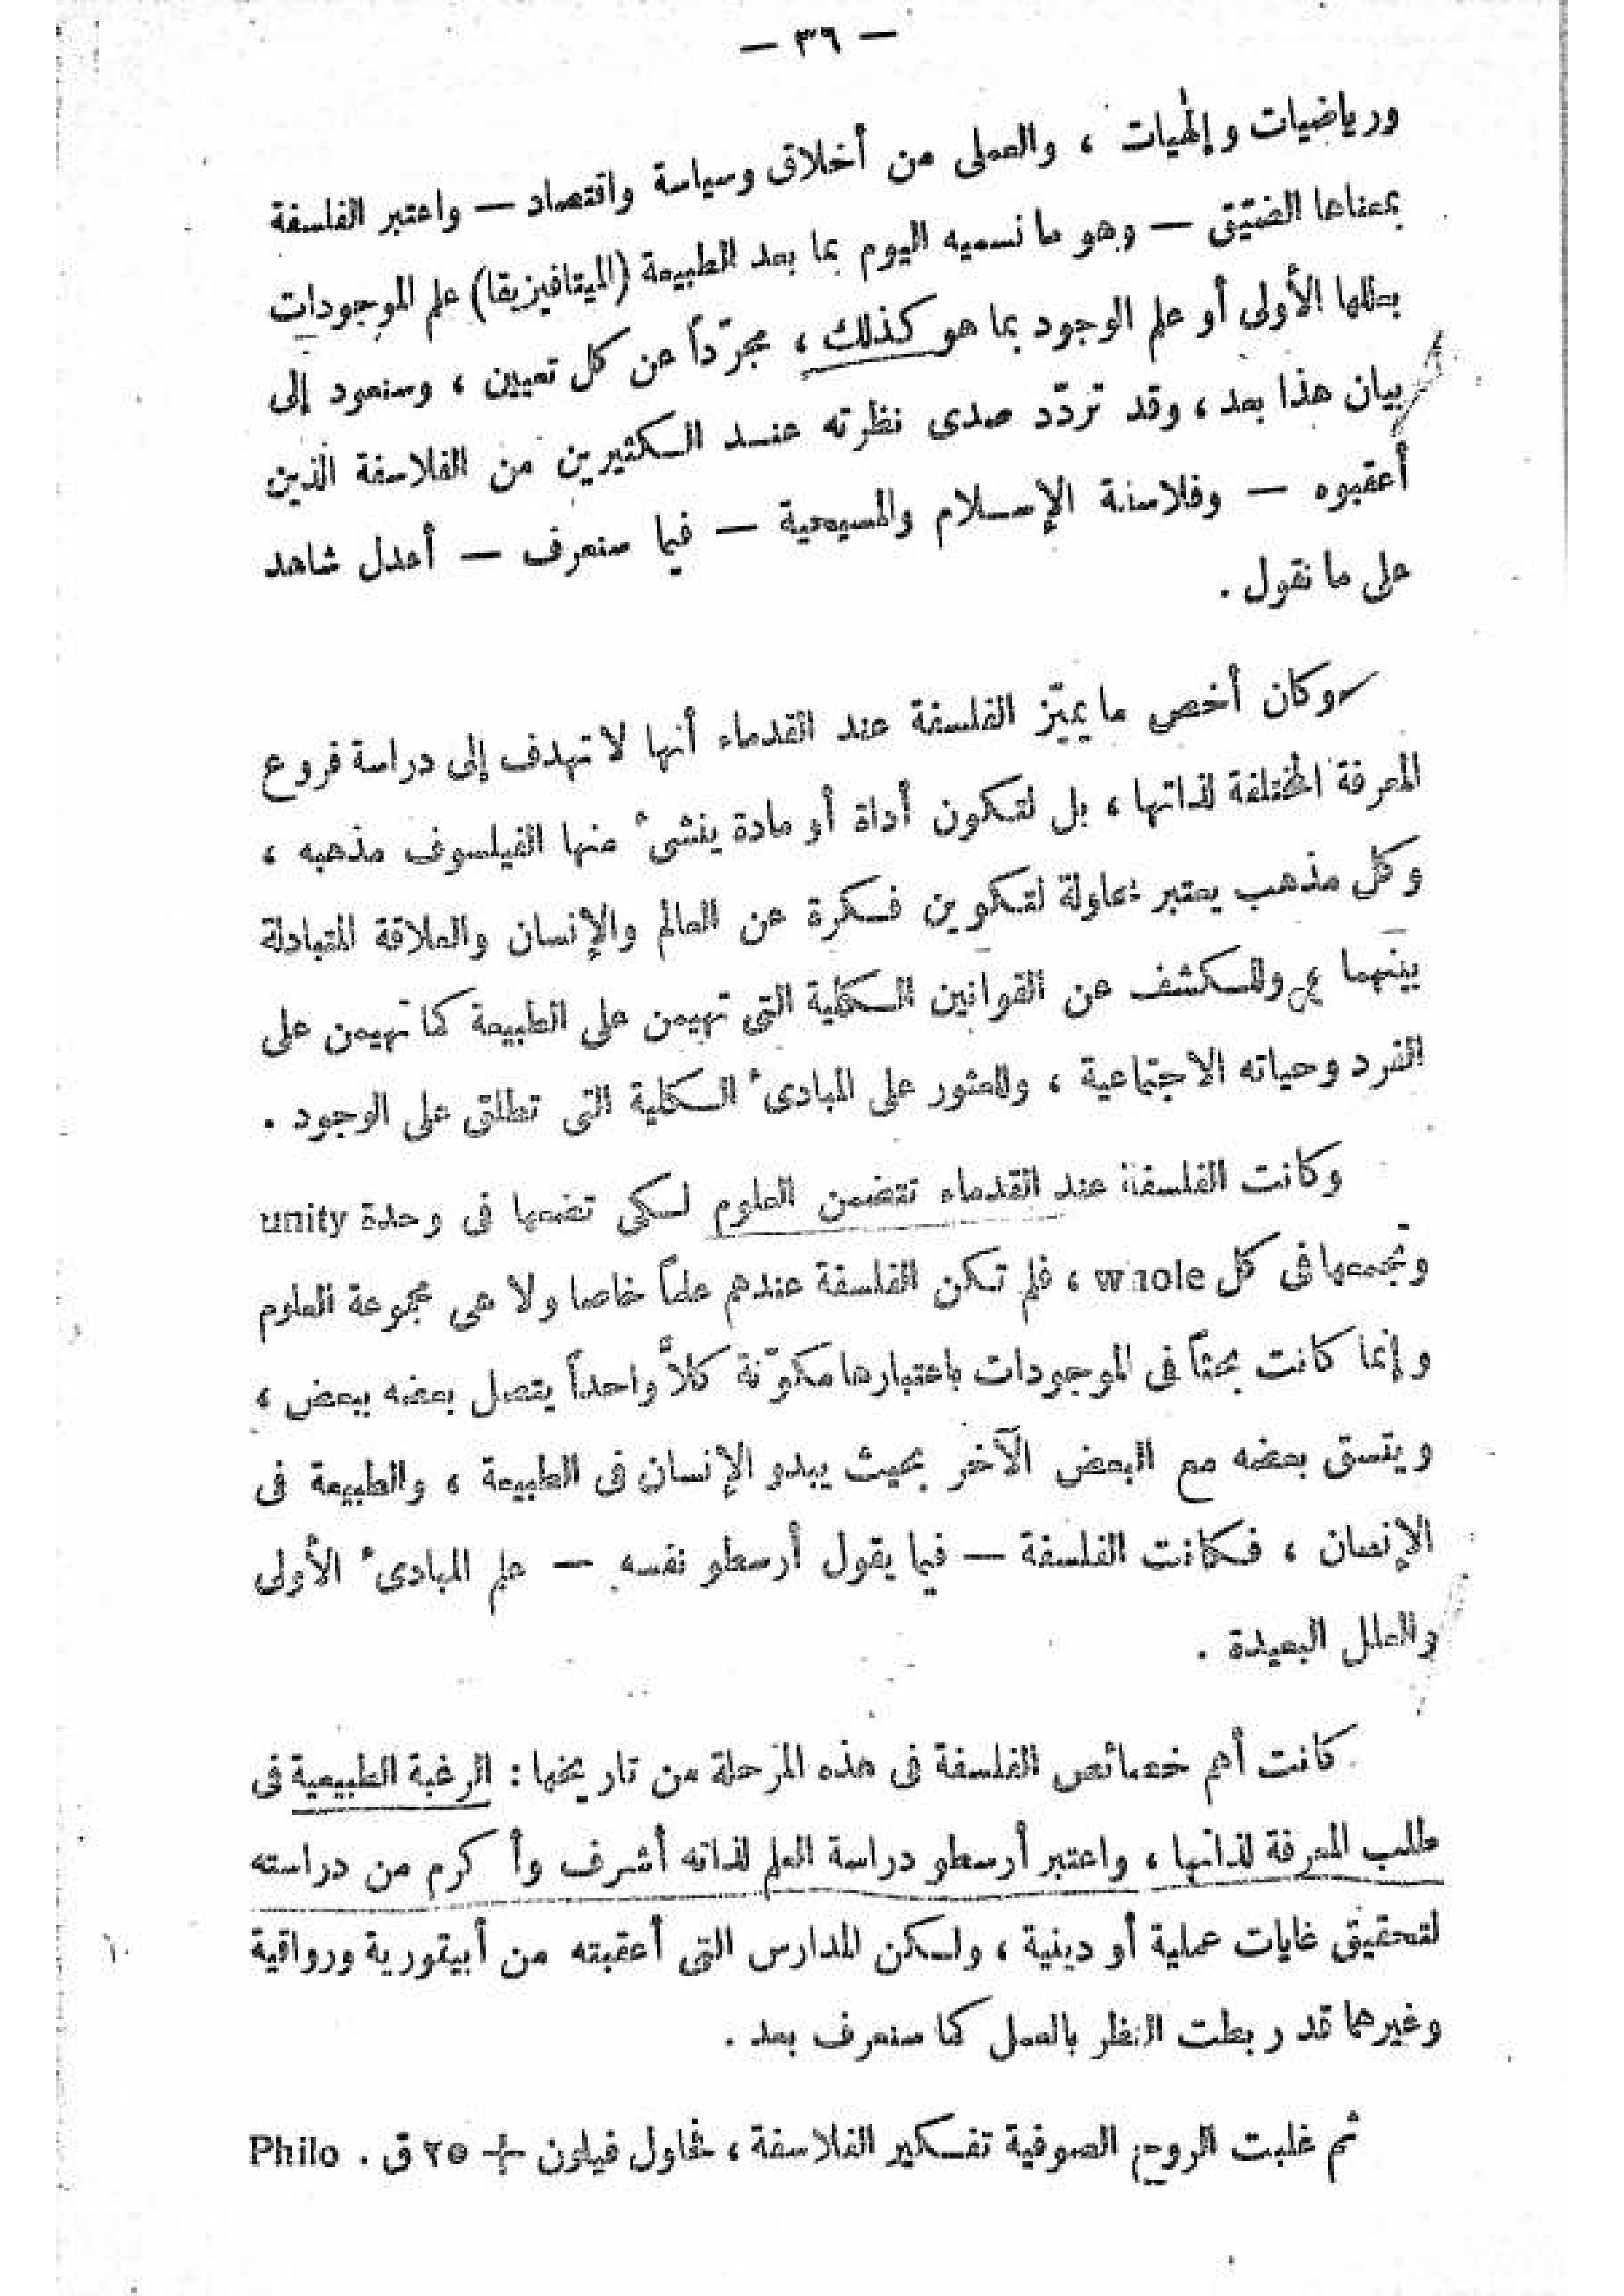 — ٣٦ —
ورياضيات وإلهيات ، والعملى من أخلاق وسياسة واقتصاد — واعتبر الفلسفة
بمعناها الضيّق — وهو ما نسميه اليوم بما بعد الطبيعة (الميتافيزيقا) علم الموجودات
بعللها الأولى أو علم الوجود بما هو كذلك ، مجرّداً عن كل تعيين ، وسنعود إلى
بيان هذا بعد ، وقد تردّد صدى نظرته عند الكثيرين من الفلاسفة الذين
أعقبوه — وفلاسفة الإسلام والمسيحية — فيما سنعرف — أعدل شاهد
على ما نقول .
وكان أخص ما يميّز الفلسفة عند القدماء أنها لا تهدف إلى دراسة فروع
المعرفة المختلفة لذاتها ، بل لتكون أداة أو مادة ينشىء منها الفيلسوف مذهبه ،
وكل مذهب يعتبر محاولة لتكوين فكرة عن العالم والإنسان والعلاقة المتبادلة
بينهما ، وللكشف عن القوانين الكلية التى تهيمن على الطبيعة كما تهيمن على
الفرد وحياته الاجتماعية ، والعثور على المبادىء الكلية التى تطلق على الوجود .
وكانت الفلسفة عند القدماء تتضمن العلوم لكى تضعها فى وحدة unity
وتجمعها فى كل whole ، فلم تكن الفلسفة عندهم علماً خاصا ولا هى مجموعة العلوم
وإنما كانت بحثاً فى الموجودات باعتبارها مكوّنة كلاًّ واحداً يتصل بعضه ببعض ،
ويتسق بعضه مع البعض الآخر بحيث يبدو الإنسان فى الطبيعة ، والطبيعة فى
الإنسان ، فكانت الفلسفة — فيما يقول أرسطو نفسه — علم المبادىء الأولى
والعلل البعيدة .
كانت أهم خصائص الفلسفة فى هذه المرحلة من تاريخها : الرغبة الطبيعية فى
طلب المعرفة لذاتها ، واعتبر أرسطو دراسة العلم لذاته أشرف وأكرم من دراسته
لتحقيق غايات عملية أو دينية ، ولكن المدارس التى أعقبته من أبيقورية ورواقية
وغيرهما قد ربطت النظر بالعمل كما سنعرف بعد .
ثم غلبت الروح الصوفية تفكير الفلاسفة ، فحاول فيلون + ٢٥ ق . Philo